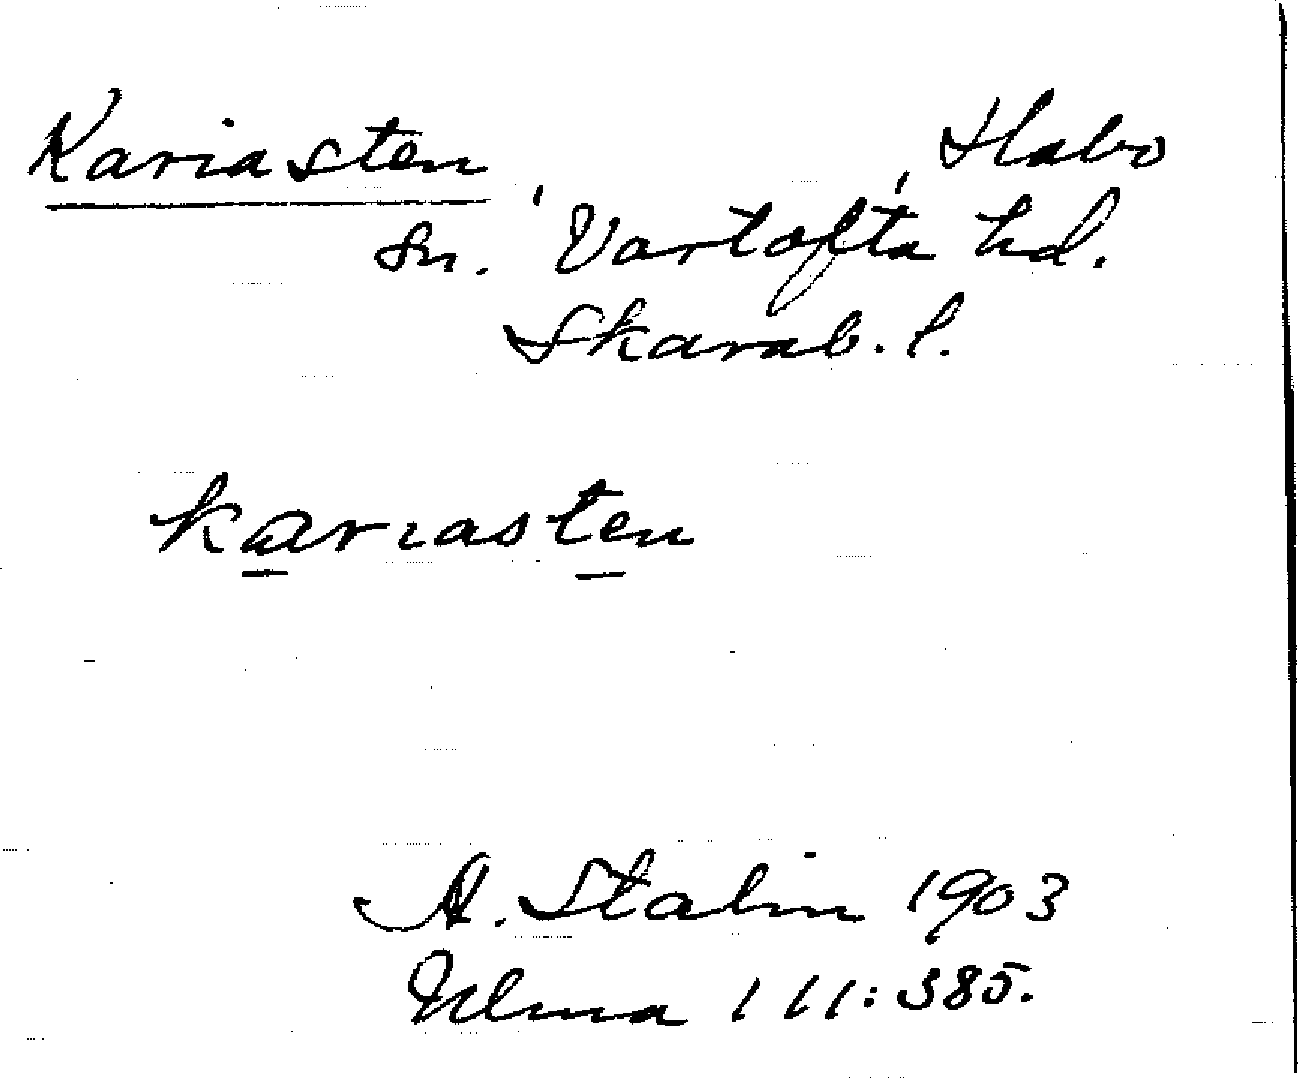 Kariasten, Habo
sn. Vartofta hd.
Skarab. l.
kariasten
A. Stalin 1903
Ulma 111:385.